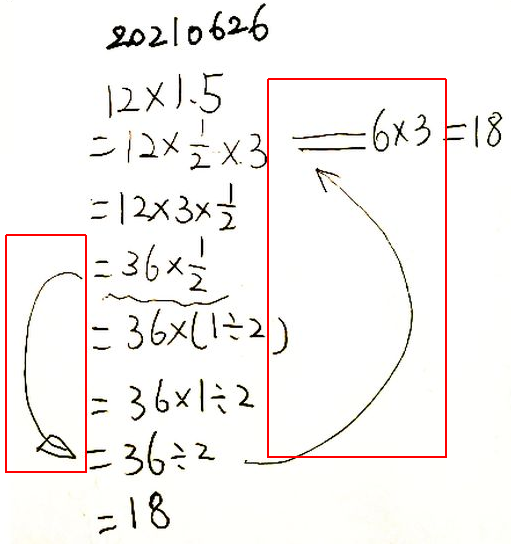 20210626
12×1.5
=12×1/2×3 = 6×3 =18
=12×3×1/2
=36×1/2
=36×(1÷2)
=36×1÷2
=36÷2
=18